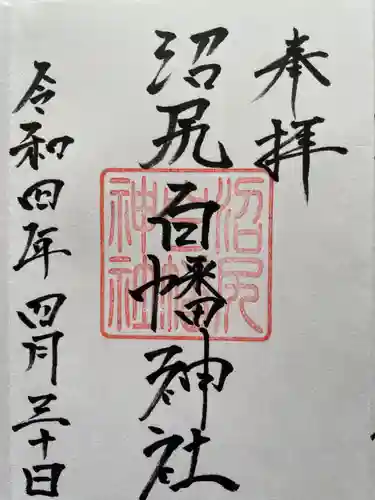 奉拝
沼尻
白幡神社
令和四年四月三十日
沼尻
白幡
神社